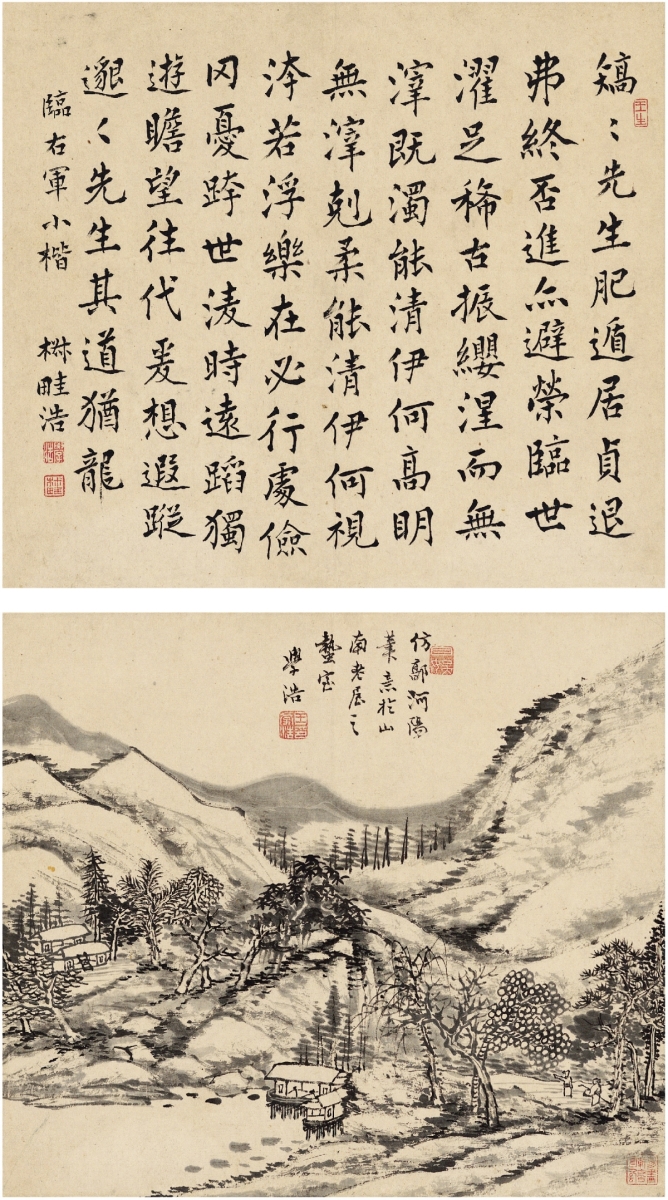 矯〻先生肥遁居貞退
弗終否進亦避榮臨世
濯足稀古振纓涅而無
滓既濁能清伊何高明
無滓剋柔能清伊何視
洿若浮樂在必行處儉
罔憂跨世淩時遠蹈獨
遊瞻望往代爰想遐蹤
邈〻先生其道猶龍
臨右軍小楷 椒畦浩
仿郭河陽
筆意於山
南老屋之
蟄室
學浩